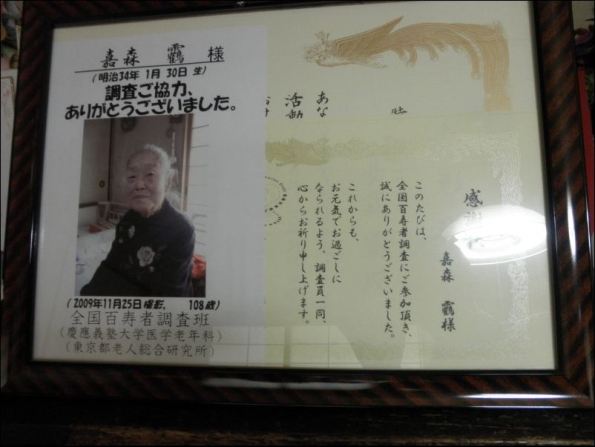 嘉森 靏 様
(明治34年 1月 30日 生)
調査ご協力、
ありがとうございました。
(2009年11月25日撮影、 108歳)
全国百寿者調査班
(慶應義塾大学医学老年科)
(東京都老人総合研究所)
あな
活動
感謝
嘉森 靏様
このたびは、
全国百寿者調査にご参加頂き、
誠にありがとうございました。
これからも、
お元気でお過ごしに
なられるよう、調査員一同、
心からお祈り申し上げます。